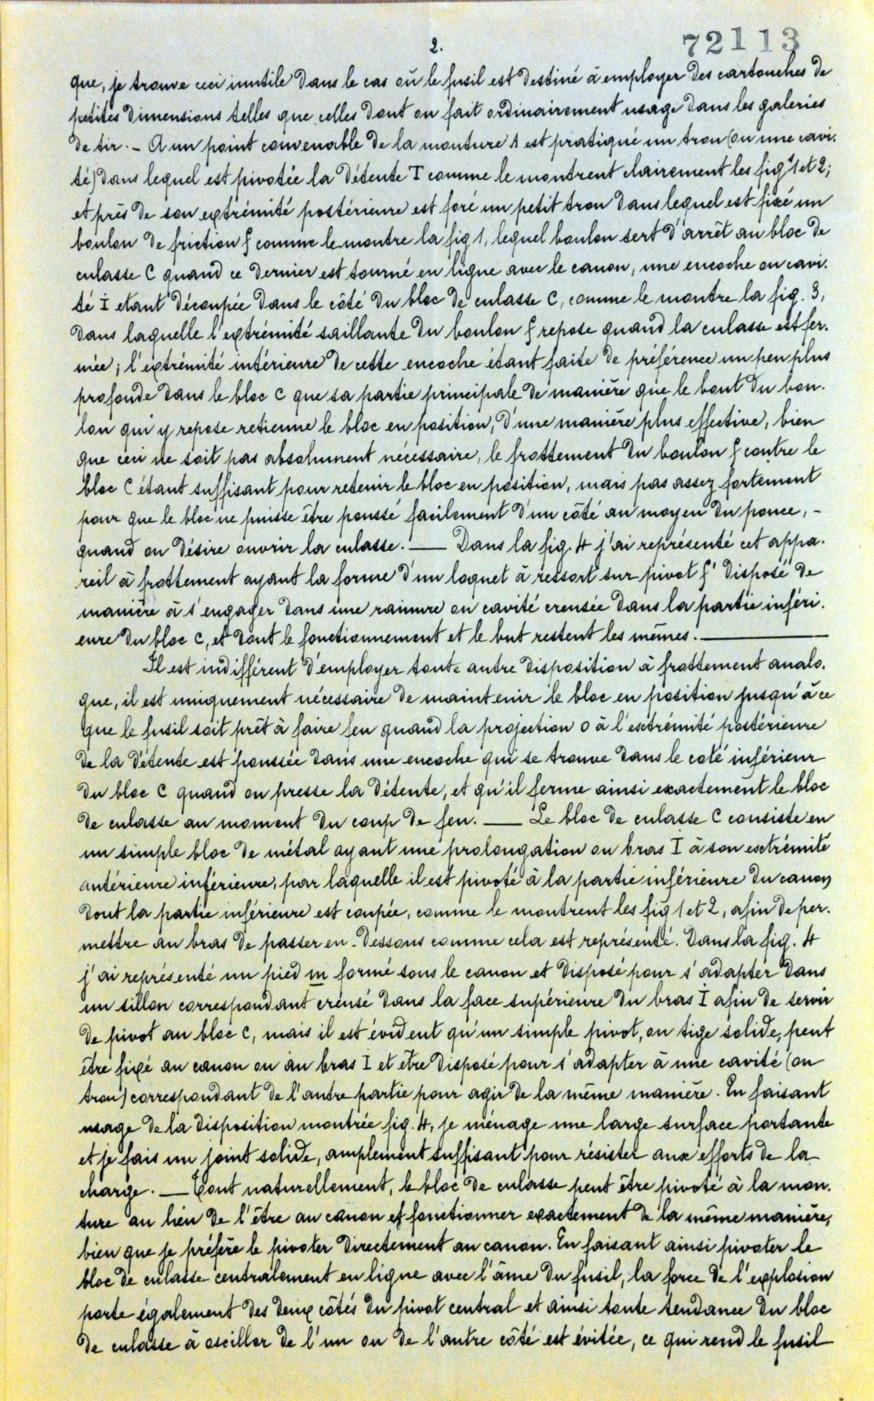 72113
2.
que, je trouve ceci inutile dans le cas où le fusil est destiné à employer des cartouches de
petites dimensions telles que celles dont on fait ordinairement usage dans les galeries
de tir. - A un point convenable de la monture A est pratiqué un trou (ou une cavi-
té) dans lequel est pivotée la détente T comme le montrent clairement les figs 1 et 2;
et près de son extrémité postérieure est foré un petit trou dans lequel est fixé un
boulon de friction f comme le montre la fig 1, lequel boulon sert d'arrêt au bloc de
culasse C quand ce dernier est tourné en ligne avec le canon, une encoche ou cavi-
té i étant découpée dans le côté du bloc de culasse C, comme le montre la fig. 3,
dans laquelle l'extrémité saillante du boulon f repose quand la culasse est fer-
mée; l'extrémité intérieure de cette encoche étant faite de préférence un peu plus
profonde dans le bloc C que sa partie principale de manière que le bout du bou-
lon qui y repose retienne le bloc en position, d'une manière plus effective, bien
que ceci ne soit pas absolument nécessaire, le frottement du boulon f contre le
bloc C étant suffisant pour retenir le bloc en position, mais pas assez fortement
pour que le bloc ne puisse être poussé facilement d'un côté au moyen du pouce, -
quand on désire ouvrir la culasse. — Dans la fig. 4 j'ai représenté cet appa-
reil à frottement ayant la forme d'un loquet à ressort sur pivot f' disposé de
manière à s'engager dans une rainure ou cavité creusée dans la partie inféri-
eure du bloc C, et dont le fonctionnement et le but restent les mêmes. —
Il est indifférent d'employer toute autre disposition à frottement analo-
gue, il est uniquement nécessaire de maintenir le bloc en position jusqu'à ce
que le fusil soit prêt à faire feu quand la projection o à l'extrémité postérieure
de la détente est poussée dans une encoche qui se trouve dans le coté inférieur
du bloc C quand on presse la détente, et qu'il ferme ainsi exactement le bloc
de culasse au moment du coup de feu. — Le bloc de culasse C consiste en
un simple bloc de métal ayant une prolongation ou bras I à son extrémité
antérieure inférieure, par laquelle il est pivoté à la partie inférieure du canon
dont la partie inférieure est coupée, comme le montrent les fig 1 et 2, afin de per-
mettre au bras de passer en-dessous comme cela est représenté. Dans la fig. 4
j'ai représenté un pied m formé sous le canon et disposé pour s'adapter dans
un sillon correspondant creusé dans la face supérieure du bras I afin de servir
de pivot au bloc C, mais il est évident qu'un simple pivot, ou tige solide, peut
être fixé au canon ou au bras I et être disposé pour s'adapter à une cavité (ou
trou) correspondant de l'autre partie pour agir de la même manière. En faisant
usage de la disposition montrée fig. 4, je ménage une large surface portante
et je fais un joint solide, amplement suffisant pour résister aux efforts de la
charge. — Tout naturellement, le bloc de culasse peut être pivoté à la mon-
ture au lieu de l'être au canon et fonctionner exactement de la même manière,
bien que je préfère le pivoter directement au canon. En faisant ainsi pivoter le
bloc de culasse centralement en ligne avec l'âme du fusil, la force de l'explosion
porte également des deux côtés du pivot central et ainsi toute tendance du bloc
de culasse à osciller de l'un ou de l'autre côté est évitée, ce qui rend le fusil